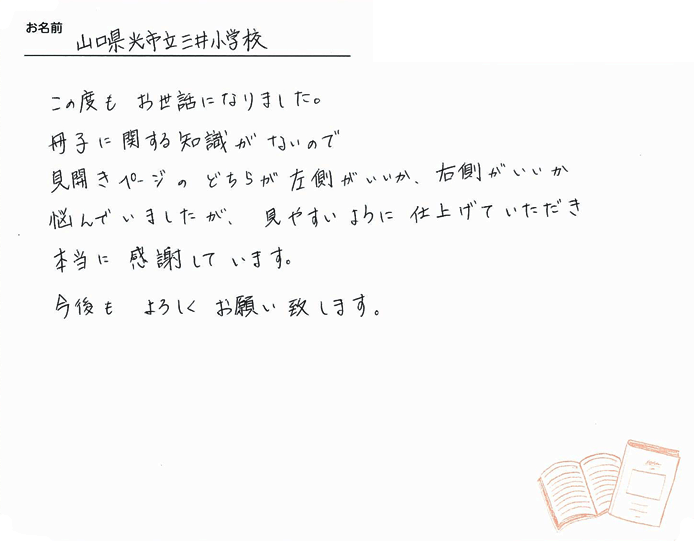 お名前
山口県光市立三井小学校
この度も お世話になりました。
冊子に関する知識がないので
見開きページの どちらが左側がいいか、右側がいいか
悩んでいましたが、見やすいように仕上げていただき
本当に 感謝しています。
今後も よろしく お願い致します。